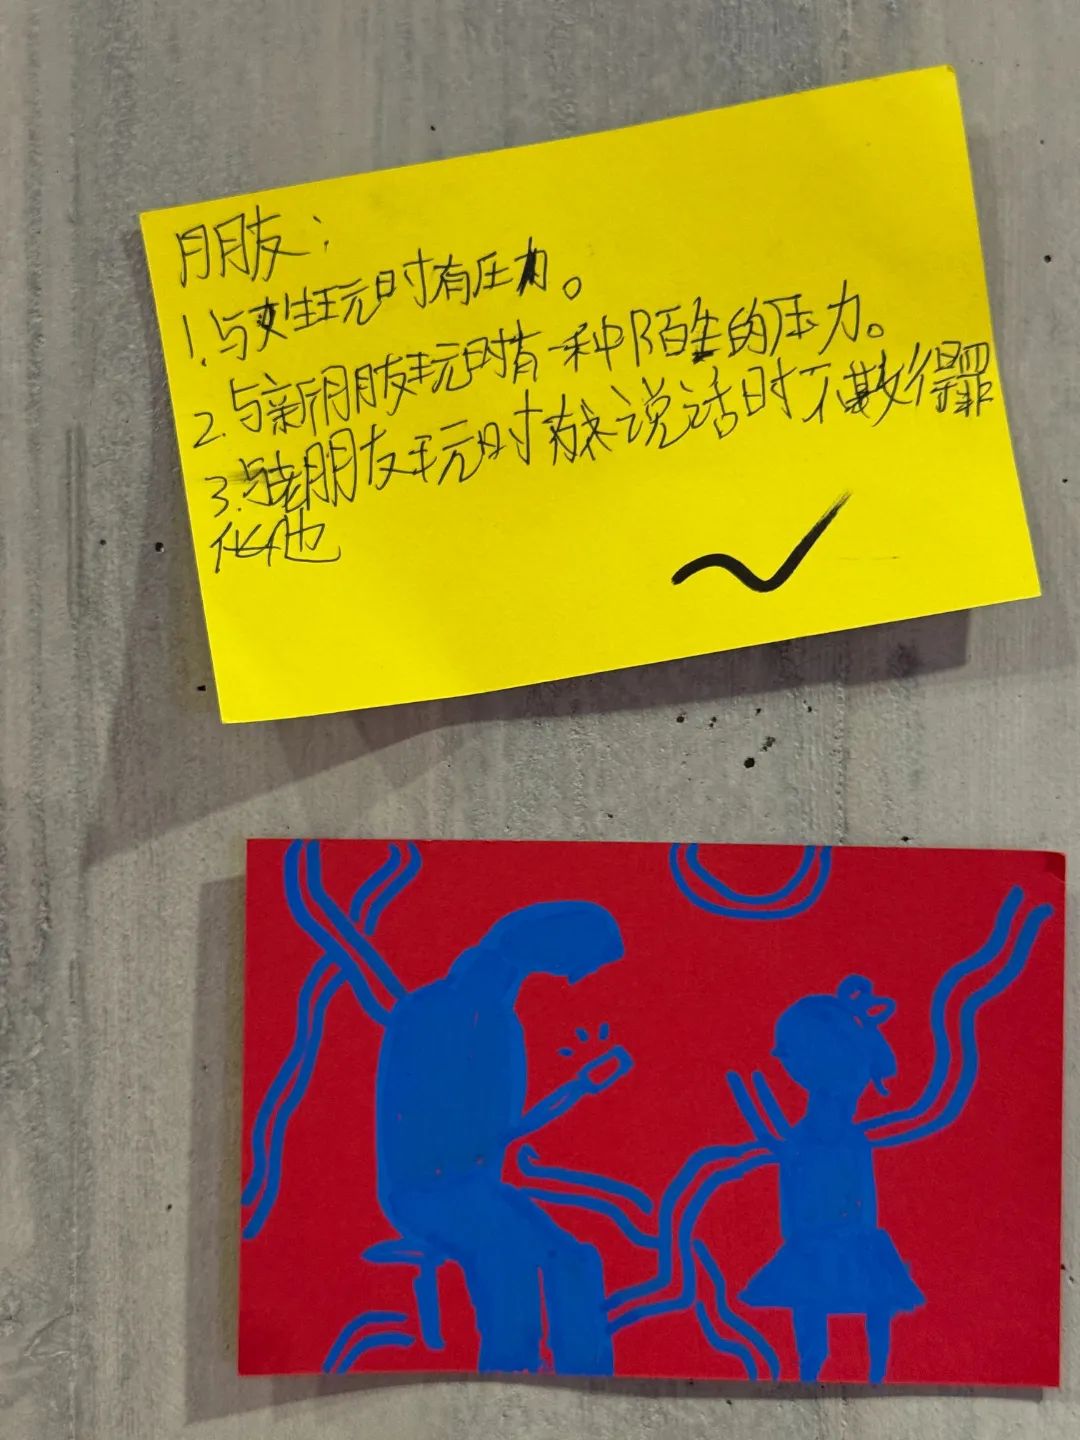 朋友：
1.与女生玩时有压力。
2.与新朋友玩时有一种陌生的压力。
3.与老朋友玩时 说话时不敢得罪
他